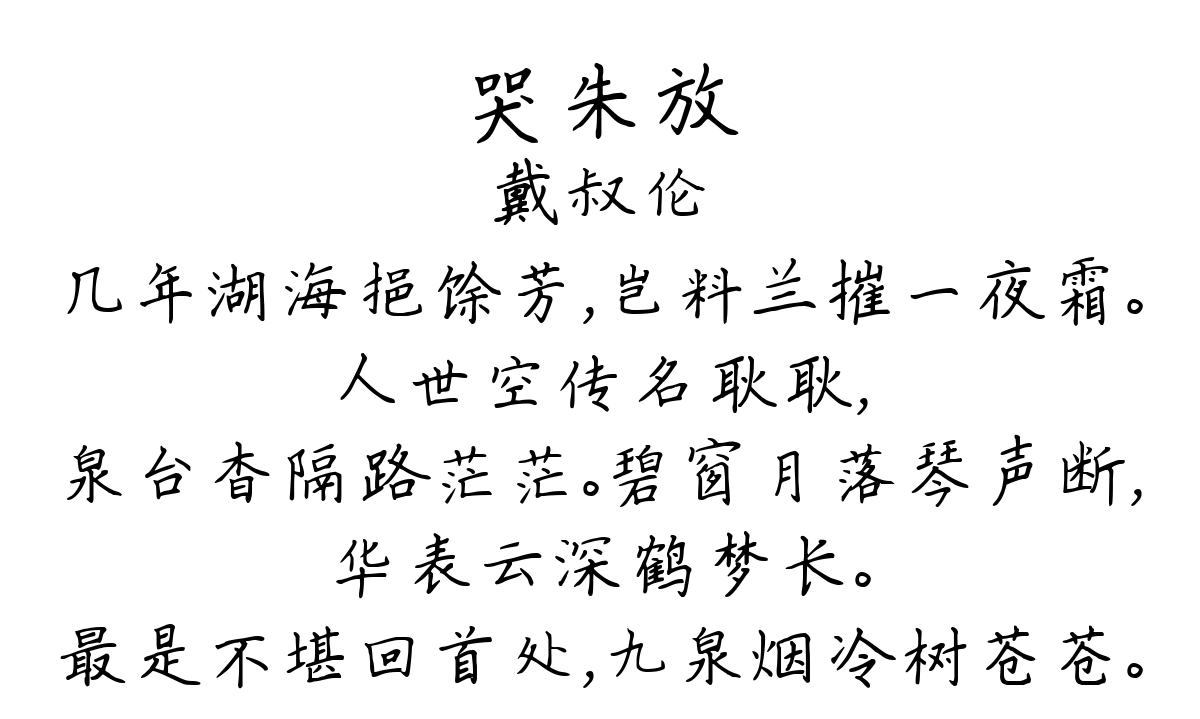 哭朱放
戴叔伦
几年湖海挹馀芳,岂料兰摧一夜霜。
人世空传名耿耿,
泉台杳隔路茫茫。碧窗月落琴声断,
华表云深鹤梦长。
最是不堪回首处,九泉烟冷树苍苍。